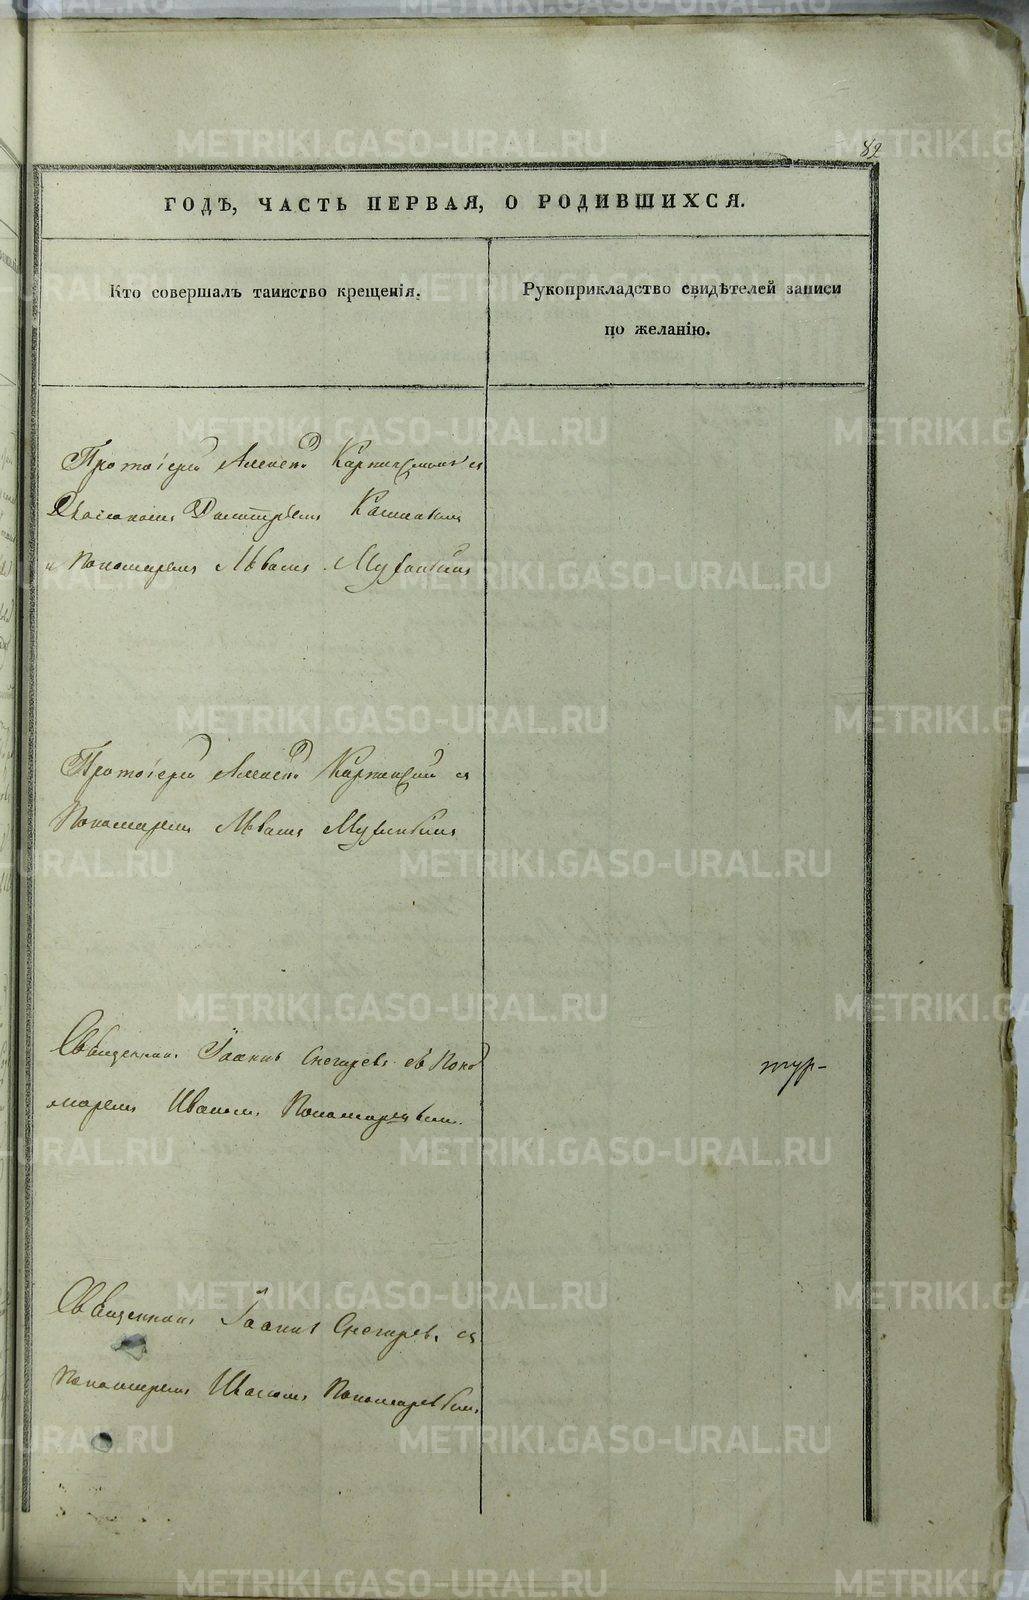 82
ГОДѢ, ЧАСТЬ ПЕРВАЯ, О РОДИВШИХСЯ.
Кто совершалъ таинство крещенія.
Рукоприкладство свидѣтелей записи
по желанію.
Протоіерей Алексѣй съ
Діакономъ Димитріемъ
и Пономаремъ Иваномъ
Протоіерей Алексѣй Карпинскій съ
Пономаремъ Иваномъ
Священникъ Іоаннъ Снегиревъ съ Поно
маремъ Иваномъ Пономаревымъ.
Священникъ Іоаннъ Снегиревъ съ
Пономаремъ Иваномъ Пономаревымъ
METRIKI.GASO-URAL.RU